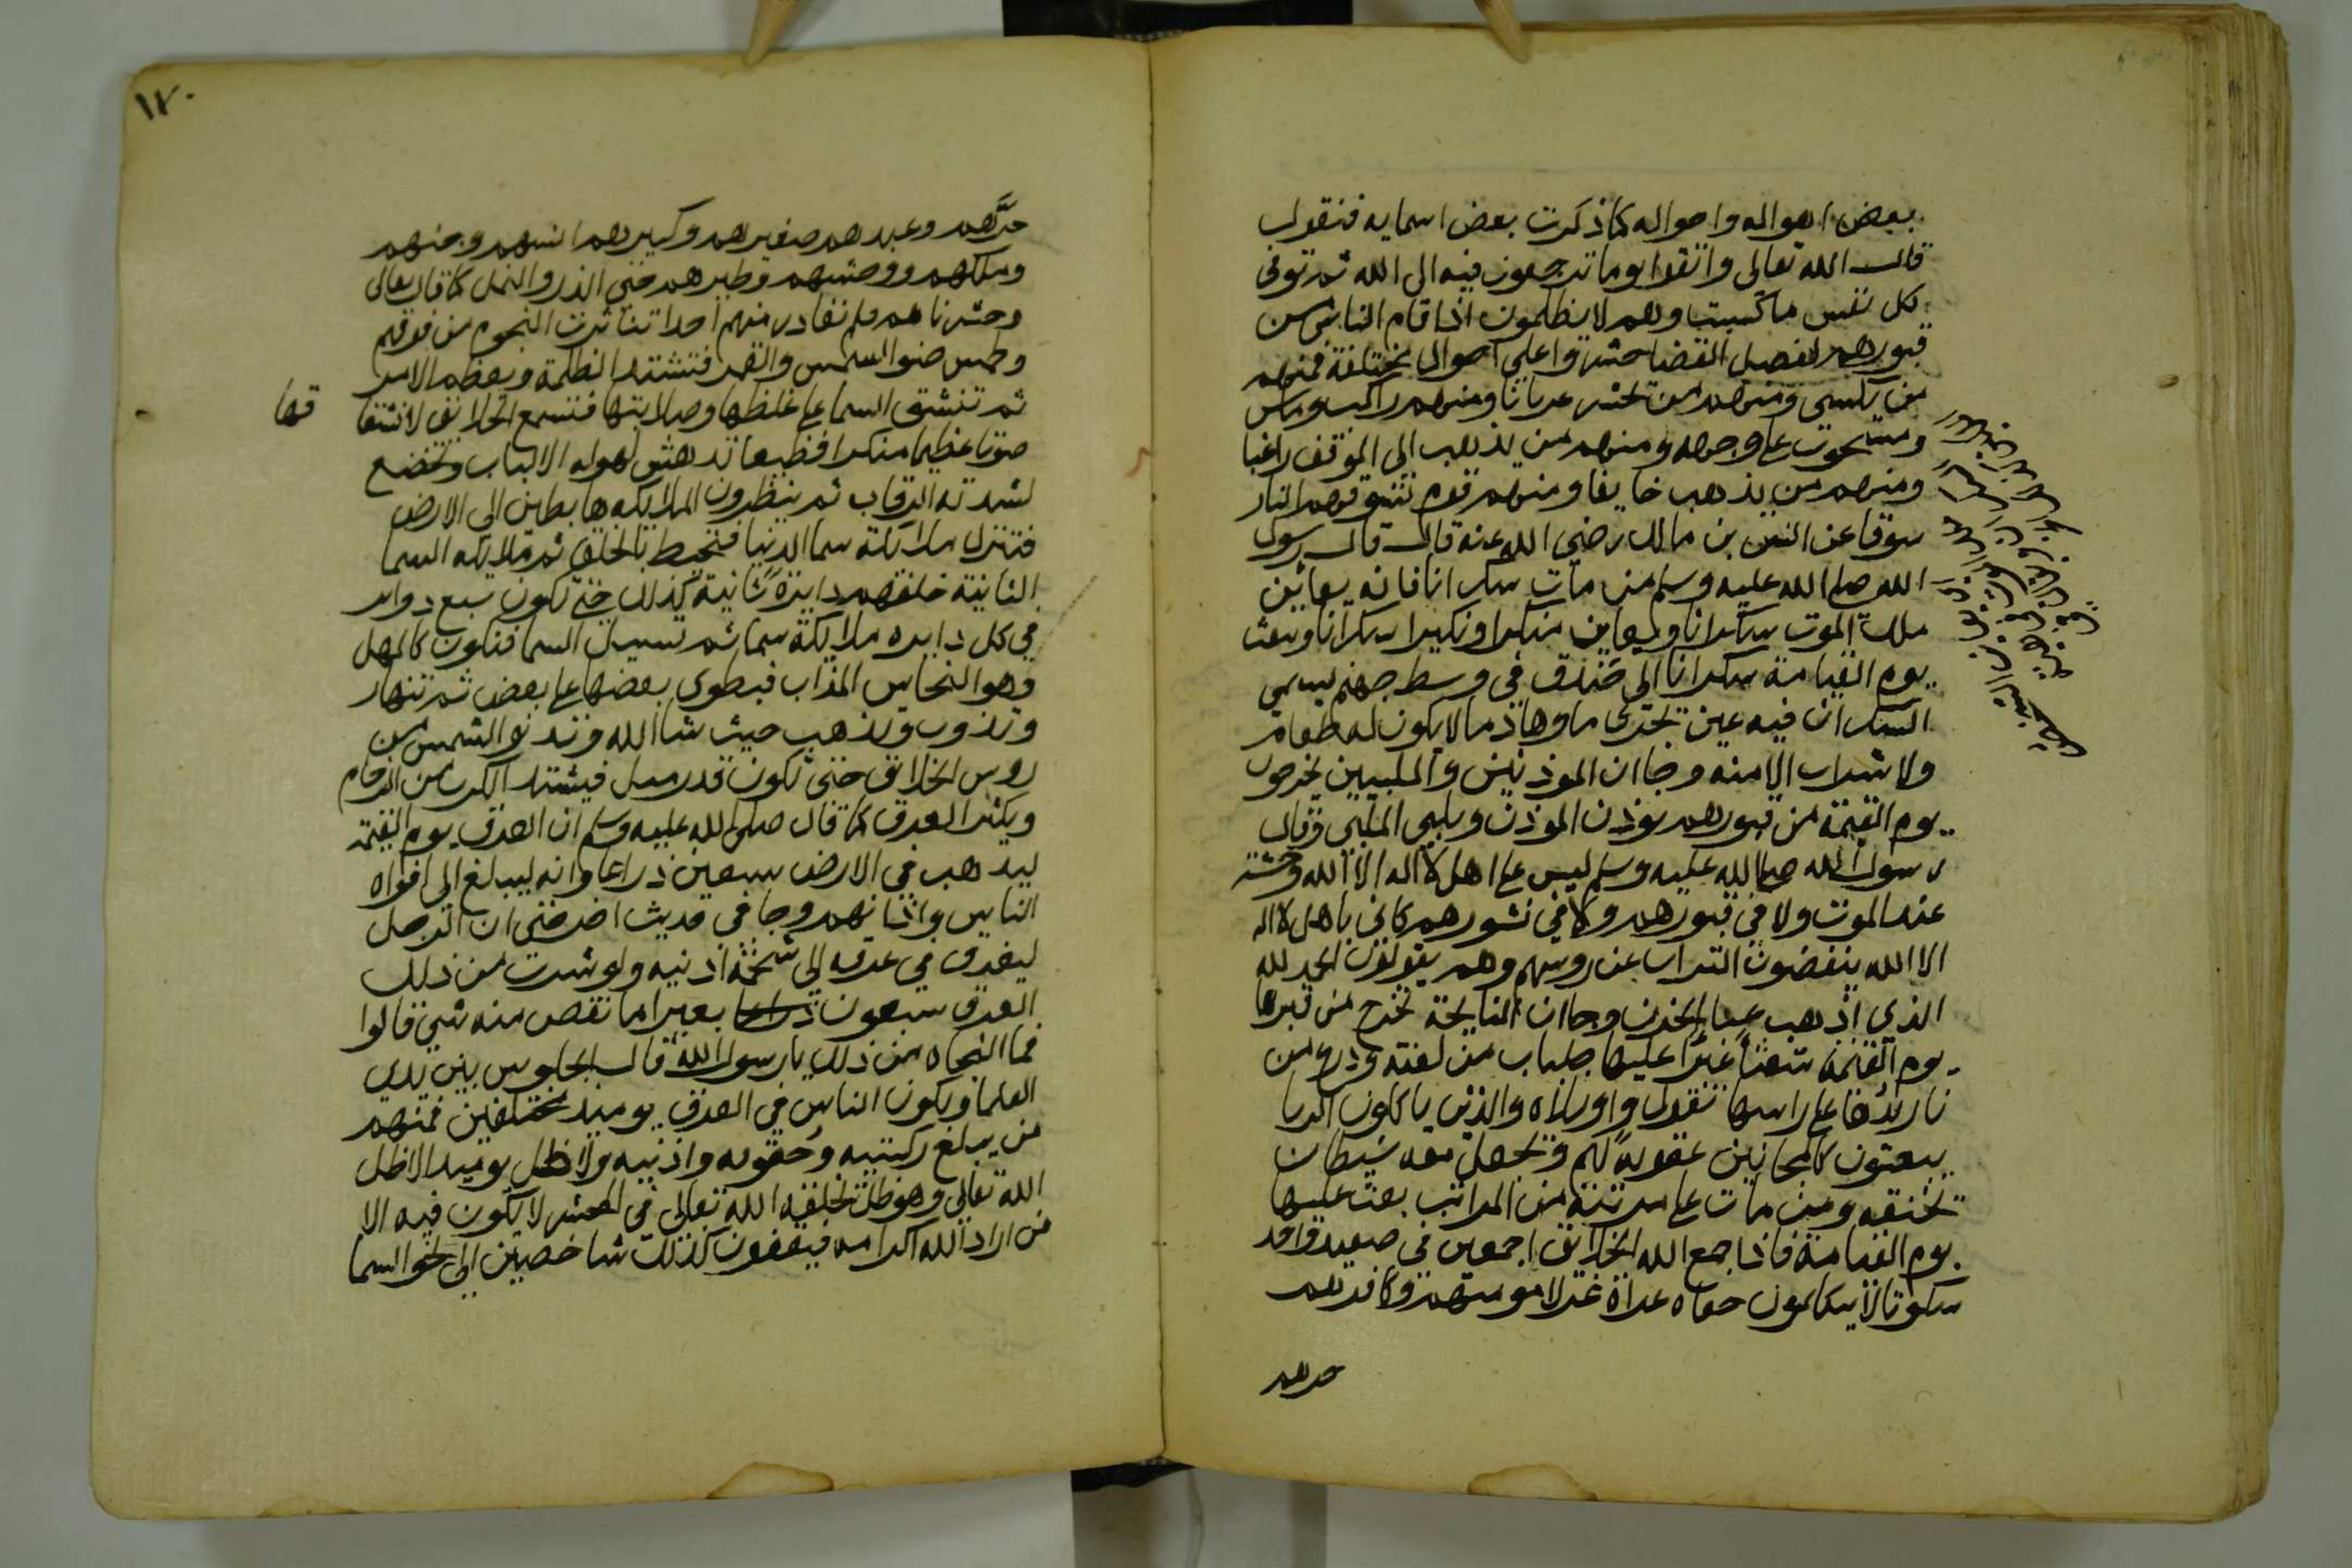 بعض اهواله واحواله كما ذكرت بعض اسمايه فنقول
قال الله تعالى واتقوا يوما ترجعون فيه الى الله ثم توفى
كل نفس ما كسبت وهم لا يظلمون اذا قام الناس من
قبورهم لفصل القضا حشروا على احوال مختلفة فمنهم
من يكسى ومنهم من يحشر عريانا ومنهم راكب وماش
ومسحوب على وجهه ومنهم من يذهب الى الموقف راغبا
ومنهم من يذهب خايفا ومنهم قوم تسوقهم النار
سوقا عن انس بن مالك رضي الله عنه قال قال رسول
الله صلى الله عليه وسلم من مات سكرانا فانه يعاين
ملك الموت سكرانا ويعاين منكرا ونكيرا سكرانا ويبعث
يوم القيامة سكرانا الى خندق في وسط جهنم يسمى
السكران فيه عين تجرى ماوها دما لا يكون له طعام
ولا شراب الا منه وجا ان الموذنين والملبيين يخرجون
يوم القيمة من قبورهم يوذن الموذن ويلبي الملبي وقال
رسول الله صلى الله عليه وسلم ليس على اهل لا اله الا الله وحشة
عند الموت ولا في قبورهم ولا في نشورهم كاني باهل لا اله
الا الله ينفضون التراب عن روسهم وهم يقولون الحمد لله
الذي اذهب عنا الحزن وجا ان النايحة تخرج من قبرها
يوم القيمة شعثا غبرا عليها جلباب من لعنة ودرع من
نار يدها على راسها تقول واويلاه والذين ياكلون الربا
يبعثون كالمجانين عقوبة لهم ويجعل معه شيطان
يخنقه ومن مات على مرتبة من المراتب بعث عليها
يوم القيامة فاذا جمع الله الخلايق اجمعين في صعيد واحد
سكوتا لا يتكلمون حفاه عراة غرلا مومنهم وكافرهم
حرهم
١٧٠
حرّهم وعبدهم صغيرهم وكبيرهم انسهم وجنهم
وملكهم ووحشهم وطيرهم حتى الذر والنمل كما قال تعالى
وحشرناهم فلم نغادر منهم احدا تناثرت النجوم من فوقهم
وطمس ضو الشمس والقمر فتشتد الظلمة ويعظم الامر
ثم تنشق السما على غلظها وصلابتها فتسمع الخلايق لانشقا
قها
صوتا عظيما منكرا فظيعا تدهش لهوله الالباب وتخضع
لشدته الرقاب ثم ينظرون الملايكه هابطين الى الارض
فتنزل ملايكة سما الدنيا فتحيط بالخلق ثم ملايكه السما
الثانية خلفهم دايرة ثانية كذلك حتى تكون سبع دواير
في كل دايره ملايكة سما ثم تسيل السما فتكون كالمهل
وهو النحاس المذاب فيطوى بعضها على بعض ثم تنهار
وتذوب وتذهب حيث شا الله وتدنو الشمس من
روس الخلايق حتى تكون قدر ميل فيشتد الكرب من الزحام
ويكثر العرق كما قال صلى الله عليه وسلم ان العرق يوم القيمة
ليذهب في الارض سبعين ذراعا وانه ليبلغ الى افواه
الناس واذانهم وجا في حديث اخر حتى ان الرجل
ليغرق في عرقه الى شحمة اذنيه ولو شرب من ذلك
العرق سبعون ذراعا بعيرا ما نقص منه شي قالوا
فما النجاه من ذلك يا رسول الله قال الجلوس بين يدي
العلما ويكون الناس في العرق يوميذ مختلفين فمنهم
من يبلغ ركبتيه وحقويه واذنيه ولا ظل يوميذ الا ظل
الله تعالى وهو ظل يخلقه الله تعالى في المحشر لا يكون فيه الا
من اراد الله اكرامه فيقفون كذلك شاخصين الى نحو السما